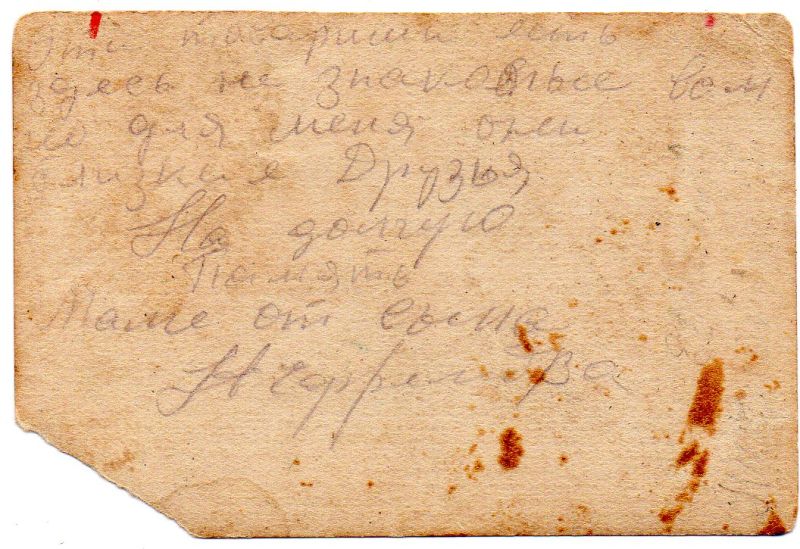 Эти товарищи есть
здесь не знакомые вам
но для меня очен
близкие Друзья
На долгую
Память
Маме от сына